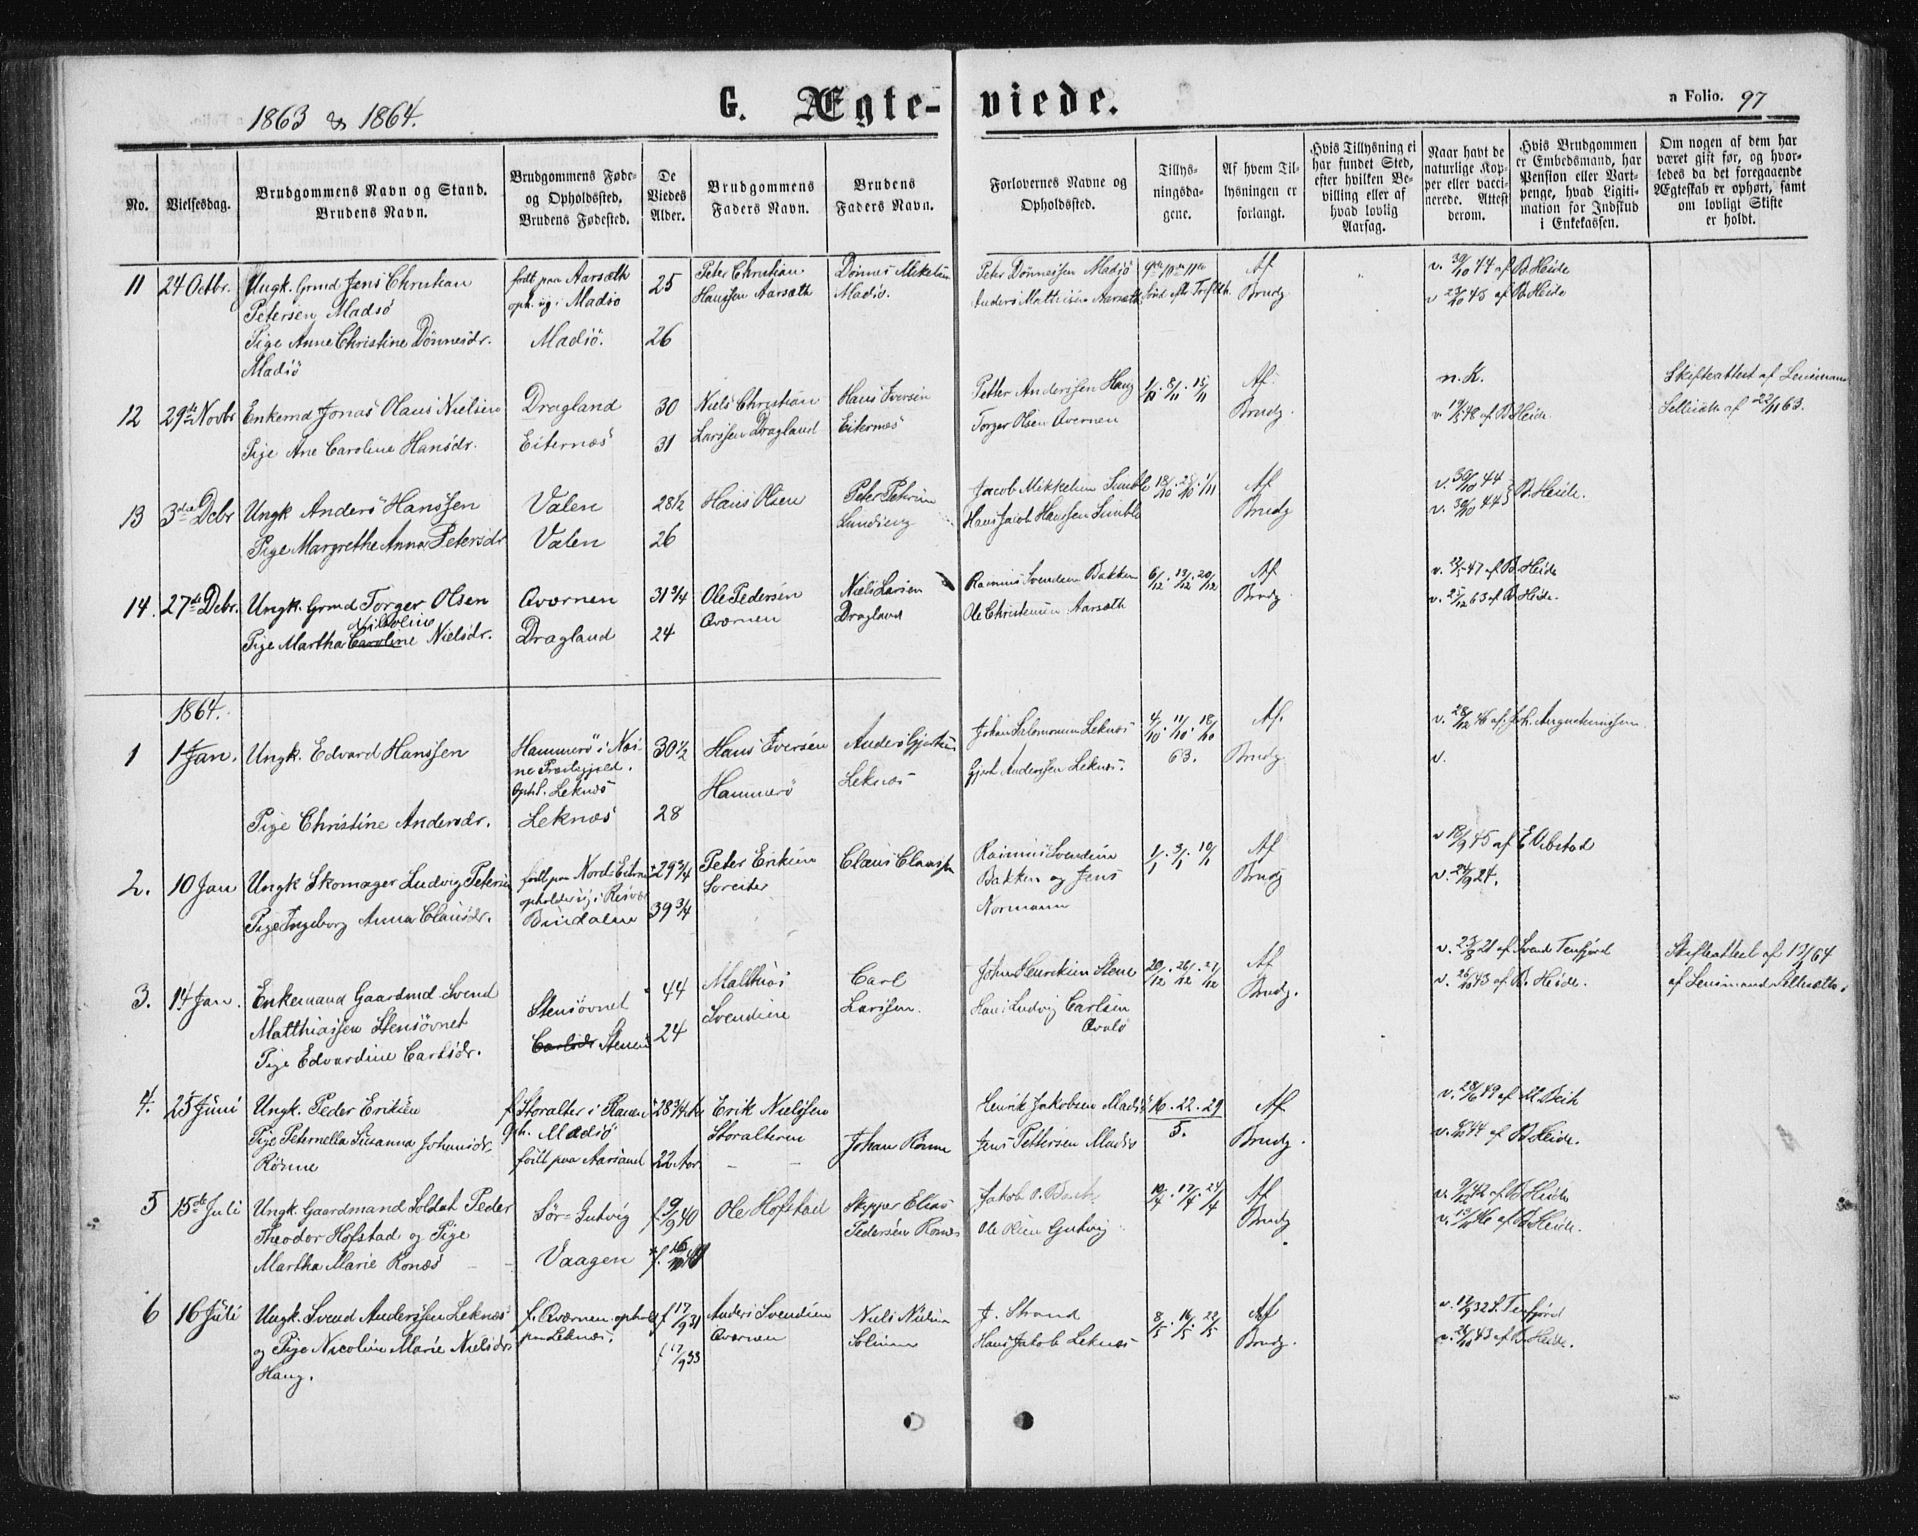 1863 & 1864.
G. Ægte-viede.
a Folio. 97
No.
Vielsesdag.
Brudgommens Navn og Stand.
Brudens Navn.
Brudgommens Føde-
og Opholdssted.
Brudens Fødested.
De
Viedes
Alder.
Brudgommens
Faders Navn.
Brudens
Faders Navn.
Forlovernes Navne og
Opholdssted.
Tillys-
ningsda-
gene.
Af hvem Til-
lysningen er
forlangt.
Hvis Tillysning ei
har fundet Sted,
efter hvilken Be-
villing eller af
hvad lovlig
Aarsag.
Naar havt de
naturlige Kop-
per eller vacci-
nerede. Attest
derom.
Hvis Brudgommen
er Embedsmand, har
Pension eller Vart-
penge, hvad Ligiti-
mation for Indskud
i Enkekassen.
Om nogen af dem har
været gift før, og hvor-
ledes da det foregaaende
Ægteskab er ophørt, samt
om lovligt Skifte
er holdt.
11 24 Octbr. Ungk. Grmd Jens Christian
Petersen Madsö
Pige Anne Christine Dönnesdr.
Madsö
født paa Aarsæth
oph. sig i Madsö
Madsö.
25
26
Peter Christian
Hanssen Aarsæth
Dönnes Mikelsen
Madsö.
Peter Dönnessen Madsö
Anders Matthisen Aarsæth
9de 10de 11te
Af
Brudg.
v. 30/10 44 af B. Heide
v. 23/10 45 af B. Heide
12 29de Novbr Enkemd Jonas Olaus Nielsen
Pige Ane Caroline Hansdr.
Dragland
Eiternæs
30
31
Niels Christian
Larssen Dragland
Hans Iversen
Eiternæs
Petter Anderssen Haug
Torger Olsen Aværnen
1/11. 8/11. 15/11
Af
Brudg.
n. K.
v. 19/5 48 af B. Heide
Skifteattest af Lensmand
af 22/11 63.
13 3die Dcbr Ungk Anders Hanssen
Pige Margrethe Anna Petersdr
Valen
Valen
28 1/2
26
Hans Olsen
Peter Petersen
Jacob Mikkelsen
Hans Jacob Hanssen
18/10. 25/10. 1/11
Af
Brudg
v. 30/10 44
v. 30/10 44 B. Heide.
14. 27de Dcbr. Ungk. Grmd Torger Olsen
Nicoline
Pige Martha Caroline Nielsdr.
Aværnen
Dragland
31 3/4
24
Ole Pedersen
Aværnen
Niels Larsen
Dragland
Rasmus Svendsen Bakken
Ole Christensen Aarsæth
6/12. 13/12. 20/12
Af
Brudg.
v. 12/5 47 af B. Heide
v. 27/12 63 af B. Heide.
1864.
1 1 Jan. Ungk. Edvard Hanssen
Pige Christine Andersdr.
Hammerö i Næs-
ne Præstegjeld.
Oph. Leknæs
Leknæs
30 1/2
28
Hans Iversen
Hammerö
Anders Gjertsen
Leknæs
Johan Salomonsen Leknæs
Gjert Anderssen Leknæs.
4/10. 11/10. 18/10
63.
Af.
Brudg.
v. 28/12 46 af Joh. Augustinussen
v.
2. 10 Jan Ungk Skomager Ludvig Petersen
Pige Ingeborg Anna Clausdr.
født paa
opholder sig i Risvær
Bindalen
29 3/4
39 3/4
Peter Eriksen
Claus Clausen
Rasmus Svendsen
Bakken og Jens
Normann
1/1. 3/1. 10/1
Af
Brudg
v. 18/9 45 af E. Vibstad
v. 24/9 24.
3. 14 Jan. Enkemand Gaardmd Svend
Matthiassen Stensövnet
Pige Edvardine Carlsdr.
Stensövnet
Carlsdr
44
24
Matthias
Svendsen
Carl
Larssen.
Johan Henriksen Stene
Hans Ludvig Carlsen
20/12. 26/12. 27/12
Af
Brudg.
v. 23/8 21 af Svend Tenfjord
v. 26/10 43 af B. Heide.
Skifteattest af 12/1 64
af Lensmand
4. 25 Juni Ungk. Peder Eriksen
Pige Peternella Susanna Johansdr.
Rönne
f. Storalter i Ranen
Oph. Madsö
født paa Aarsand
28 3/4
22 Aar
Erik Nielssen
Storalteren
Johan Rönne
Henrik Jakobsen Madsö
Jens Pettersen Madsö
16. 22. 29
5.
Af
Brudg.
v. 28/6 49 af
v. 44 af B. Heide.
5 15de Juli Ungk. Gaardmand Soldat Peder
Theodor Hofstad og Pige
Martha Marie Ronæs
Sör-Gutvig
Vaagen
f. 9/9 40
Ole Hofstad
Skipper Elias
Pedersen Ronæs
Jakob
Ole Olsen Gutvig
10/4. 17/4. 24/4
Af
Brudg
v. 42 af B. Heide
v. 46 af B. Heide.
6 16 Juli Ungk. Svend Anderssen Leknæs
og Pige Nicoline Marie Nielsdr.
Haug.
f. Aværnen ophold
paa Leknæs.
f 17/9 31
f 17/9 33
Anders Svendsen
Aværnen
Niels Nielsen
J. Strand
Hans Jakob Leknæs
8/5. 16/5. 22/5
Af
Brudg.
v. 17/9 32 S. Tenfjord
v. 26/10 43 af B. Heide.